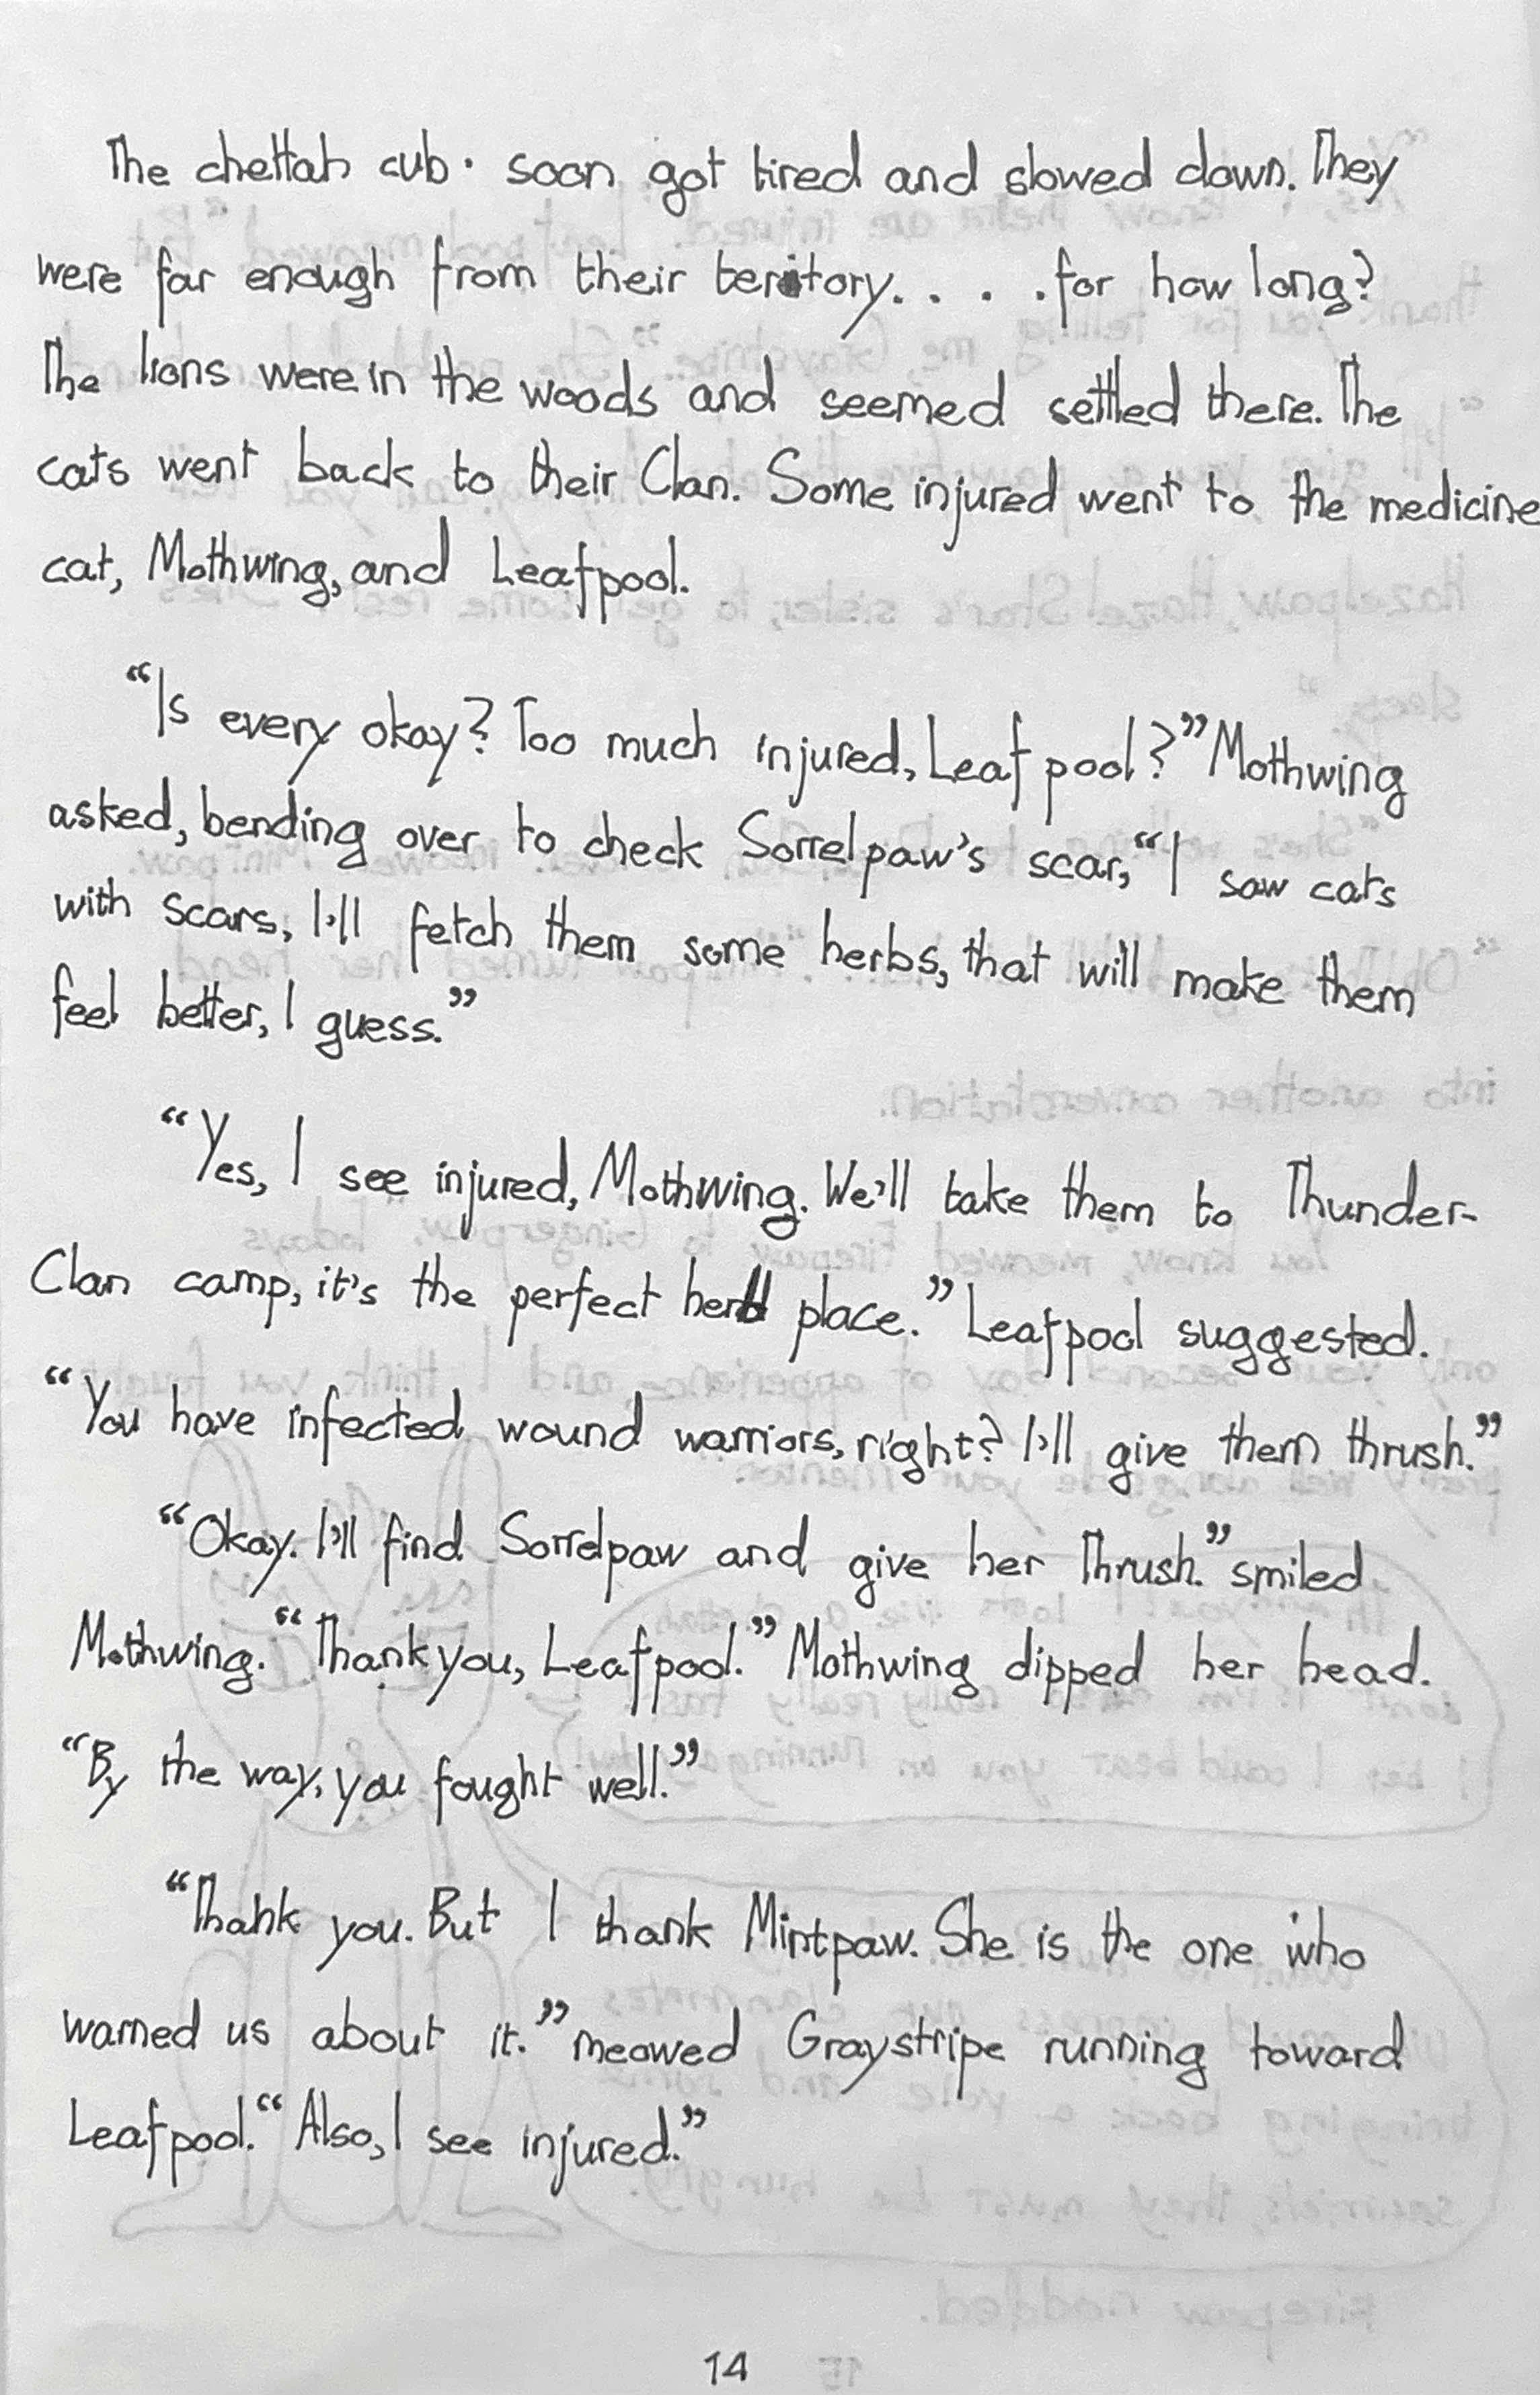 The chettah cub. soon got tired and slowed down. They
were far enough from their teritory. . . . .for how long?
The lions were in the woods and seemed settled there. The
cats went back to their Clan. Some injured went to the medicine
cat, Mothwing, and Leafpool.
“Is every okay? Too much injured, Leafpool?” Mothwing
asked, bending over to check Sorrelpaw’s scar, “I saw cats
with scars, I’ll fetch them some herbs, that will make them
feel better, I guess.”
“Yes, I see injured, Mothwing. We’ll take them to Thunder-
Clan camp, it’s the perfect herb place.” Leafpool suggested.
“You have infected wound warriors, right? I’ll give them thrush.”
“Okay. I’ll find Sorrelpaw and give her Thrush.” smiled
Mothwing. “Thank you, Leafpool.” Mothwing dipped her head.
“By the way, you fought well.”
“Thank you. But I thank Mintpaw. She is the one who
warned us about it.” meowed Graystripe running toward
Leafpool. “Also, I see injured.”
14